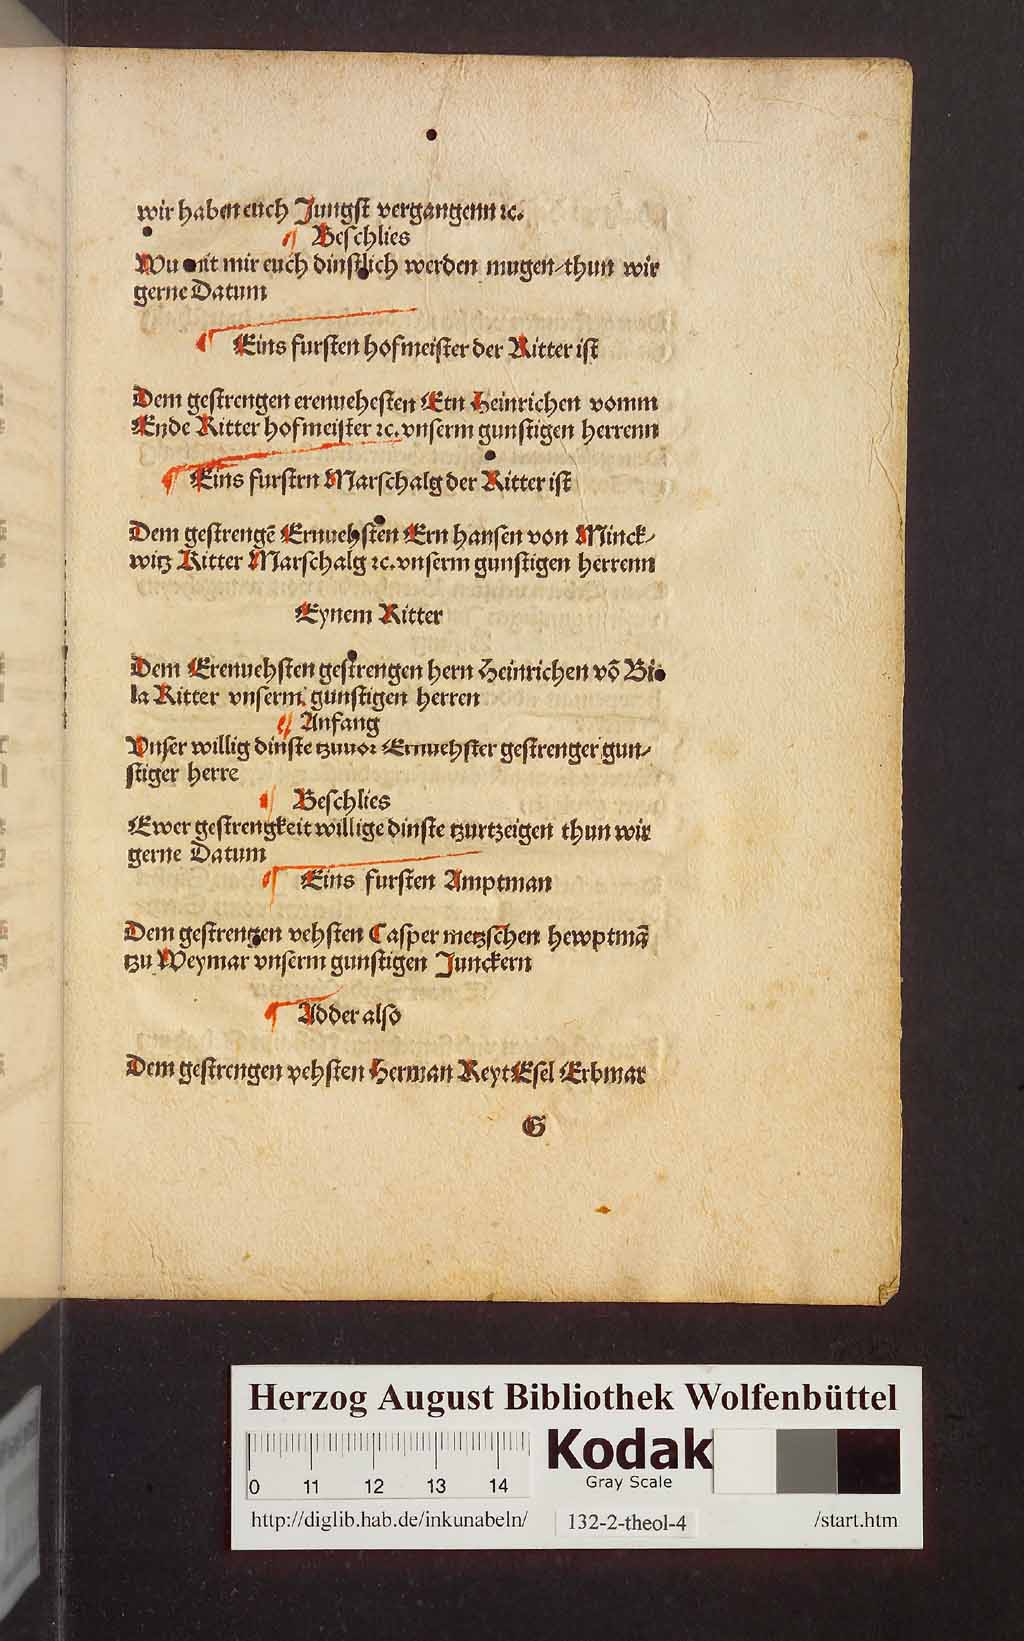 wir haben euch Jungst vergangenn ꝛc.
¶ Beschlies
Wu mit mir euch dinstlich werden mugen/thun wir
gerne Datum
¶ Eins fursten hofmeister der Ritter ist
Dem gestrengen erennehesten Ern Heinrichen vomm
Ende Ritter hofmeister ꝛc. vnserm gunstigen herrenn
¶ Eins furstrn Marschalg der Ritter ist
Dem gestrengē Ernuehsten Ern hansen von Minck/
witz Ritter Marschalg ꝛc. vnserm gunstigen herrenn
Eynem Ritter
Dem Erenuehsten gestrengen hern Heinrichen vō Bi
la Ritter vnserm gunstigen herren
¶ Anfang
Vnser willig dinste tzuuor Ernuehster gestrenger gun/
stiger herre
¶ Beschlies
Ewer gestrengkeit willige dinste tzurtzeigen thun wir
gerne Datum
¶ Eins fursten Amptman
Dem gestrengen vehsten Casper metzschen hewptmā
tzu Weymar vnserm gunstigen Junckern
¶ Adder also
Dem gestrengen vehsten Herman Reyt Esel Erbmar
G
Herzog August Bibliothek Wolfenbüttel
Kodak
Gray Scale
0 11 12 13 14
http://diglib.hab.de/inkunabeln/ 132-2-theol-4 /start.htm